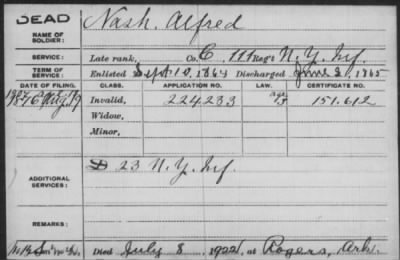 DEAD
NAME OF SOLDIER:
Nash, Alfred
SERVICE:
Late rank, Co. C, 111 Reg't N.Y. Inf.
TERM OF SERVICE
Enlisted Sept 10, 1863 Discharged June 2, 1865
DATE OF FILING. CLASS. APPLICATION NO. LAW. CERTIFICATE NO.
1876 Aug 19 Invalid, 224233 151.612
Widow,
Minor,
ADDITIONAL SERVICES:
D 23 N.Y. Inf.
REMARKS:
Died July 8, 1922, at Rogers, Ark.